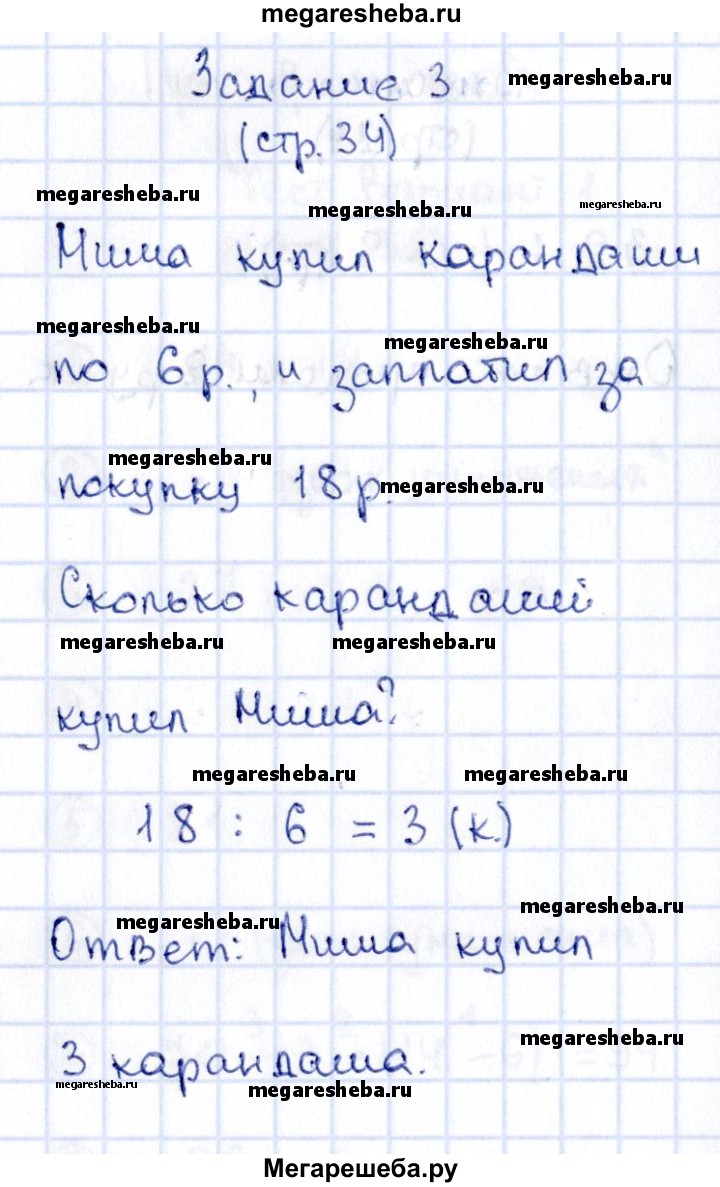 megaresheba.ru
Задание 3 megaresheba.ru
(стр. 34)
megaresheba.ru megaresheba.ru megaresheba.ru
Миша купил карандаши
megaresheba.ru megaresheba.ru
по 6 р., и заплатил за
megaresheba.ru
покупку 18 р. megaresheba.ru
Сколько карандашей
megaresheba.ru megaresheba.ru
купил Миша?
megaresheba.ru megaresheba.ru
18 : 6 = 3 (к.)
megaresheba.ru megaresheba.ru
Ответ: Миша купил
megaresheba.ru
3 карандаша.
megaresheba.ru megaresheba.ru
Мегарешеба.ру